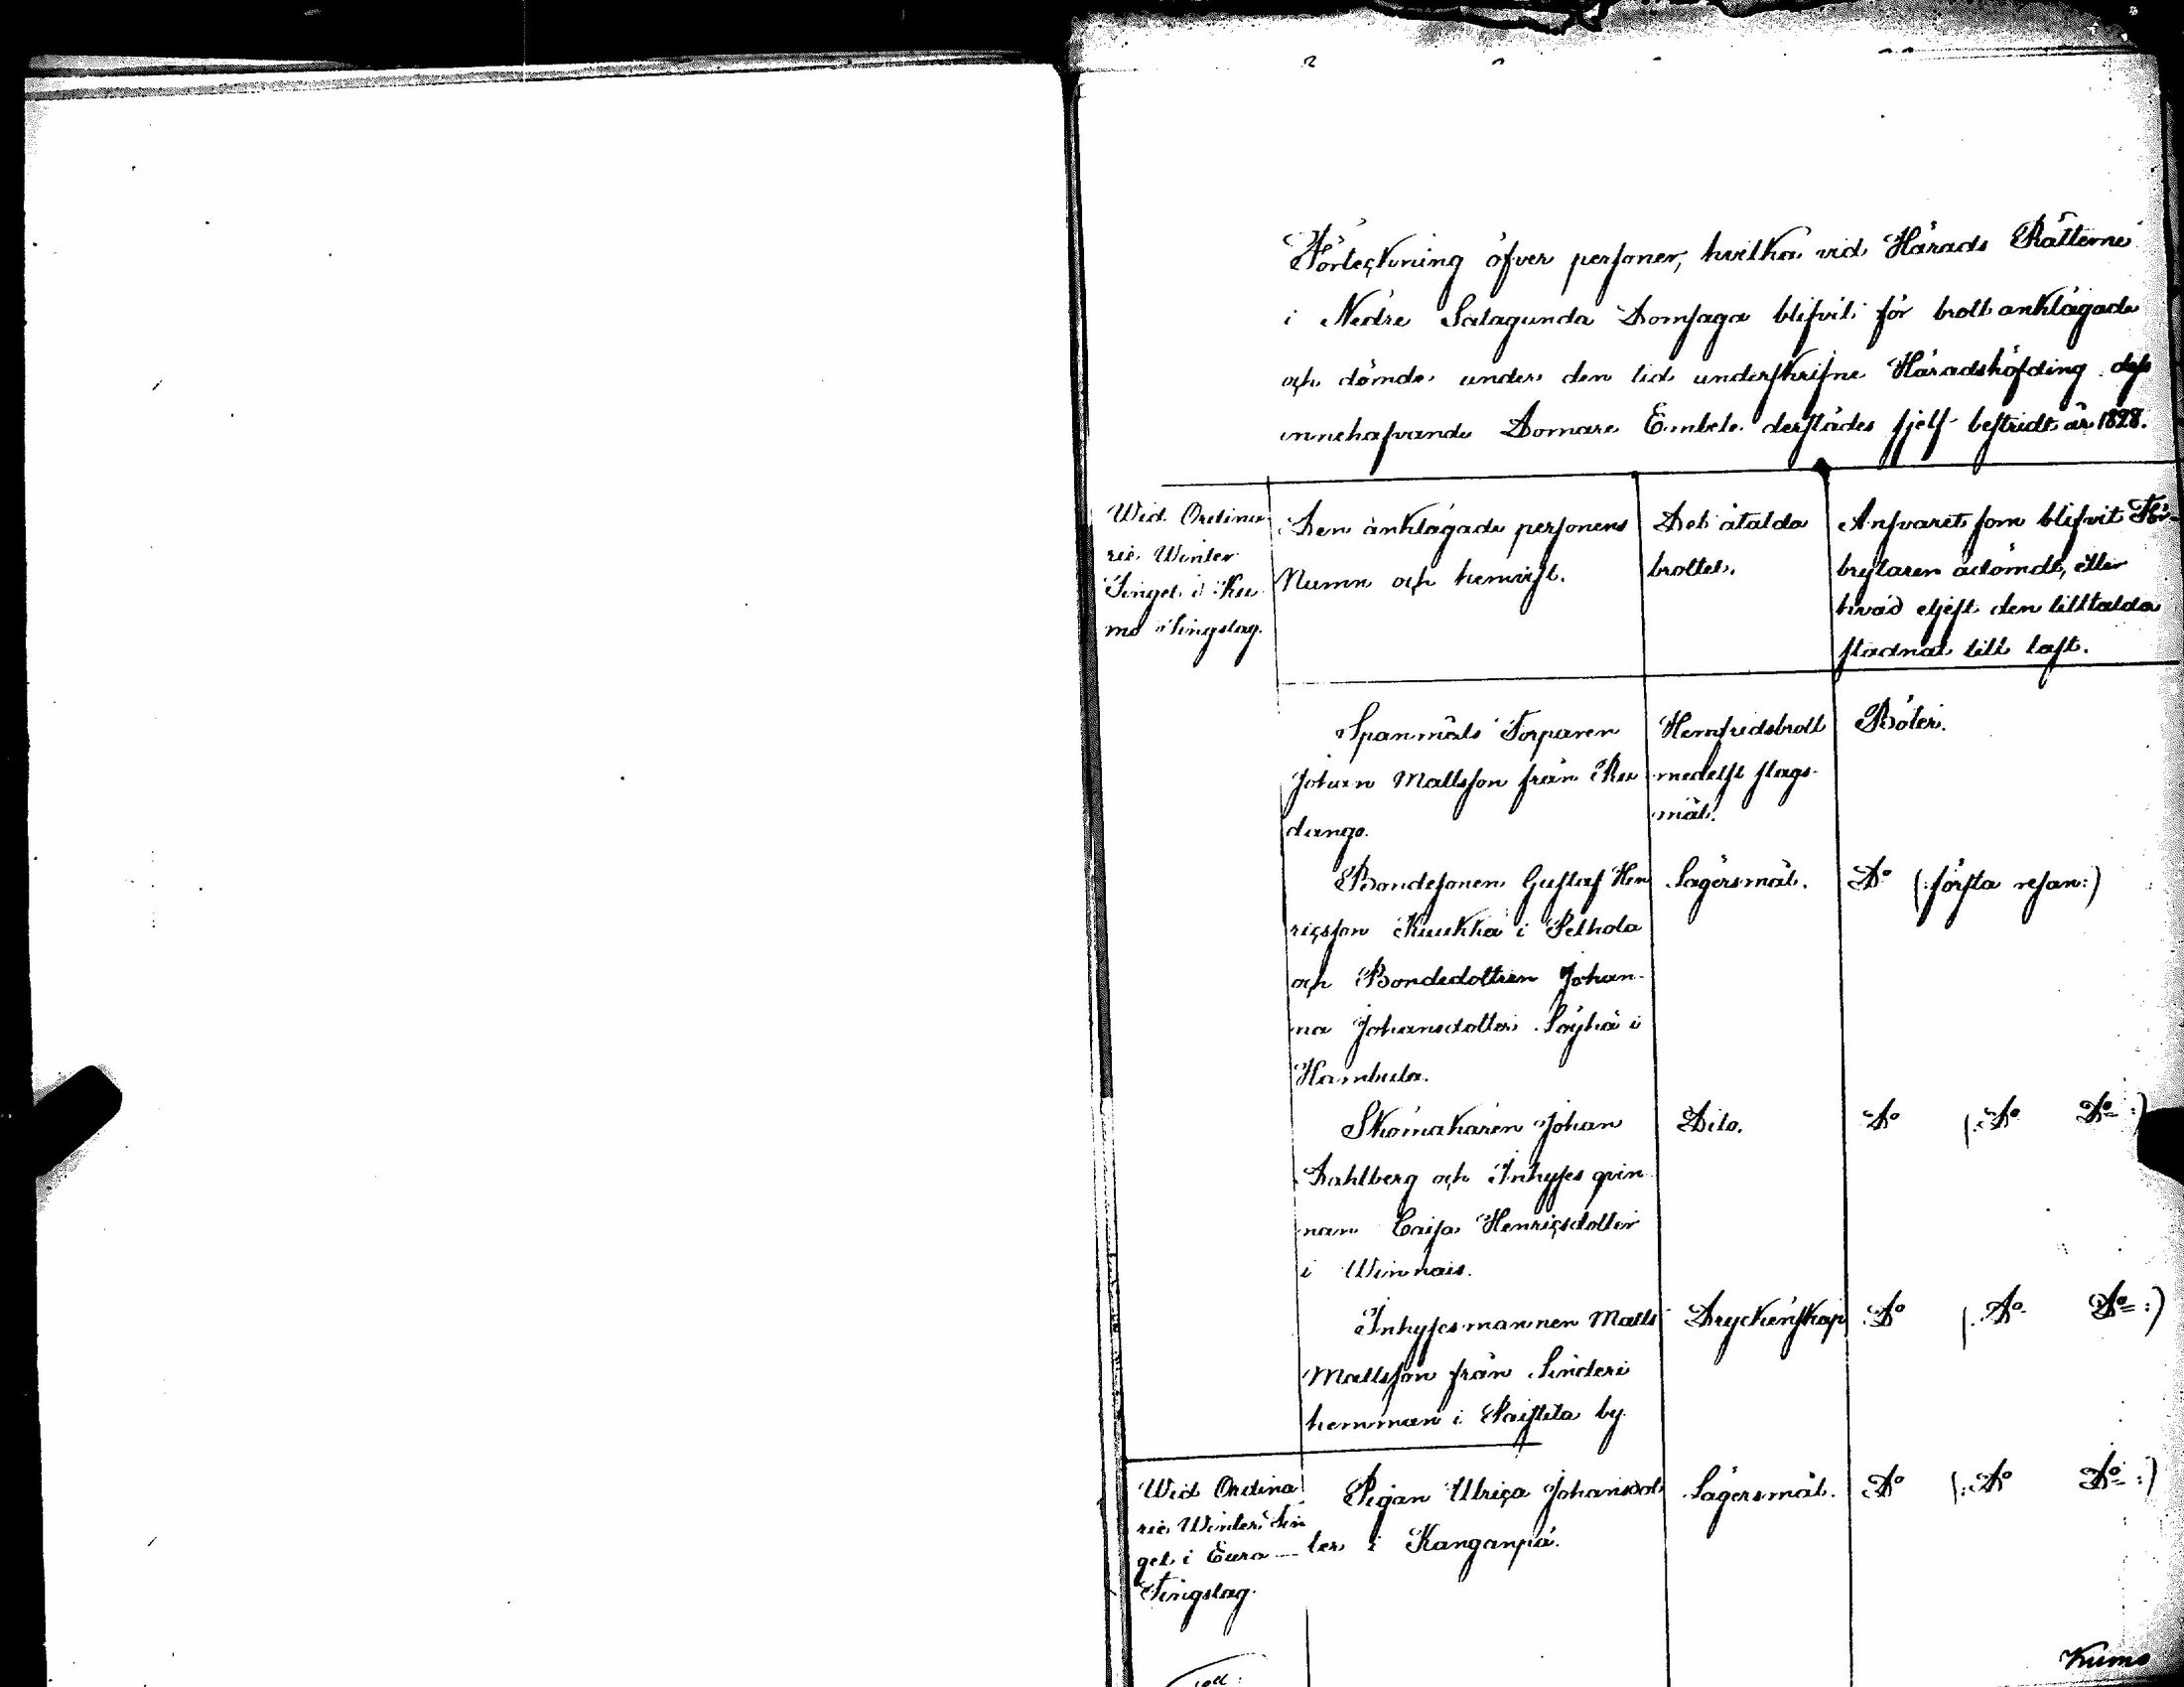 Förteckning öfver personer, hvilka vid Härads Rätterne
i Nedre Satagunda Domsaga blifvit för brott anklagade
och dömde under den tid underskrifne Häradshöfding dess
innehafvande Domare Embete derstädes sjelf bestridt år 1828.
Wid Ordina
rie Winter
Tinget i Ku
mo Tingslag.
Den anklagade personens
Namn och hemvist.
Det åtalda
brottet.
Ansvaret som blifvit För-
brytaren ådömdt, eller
hvad eljest den tilltalda
stadnat till last.
Spanmåls Torparen
Johan Mattsson från Ku
dango.
Hemfridsbrott
medelst slags-
mål.
Böter.
Bondesonen Gustaf Hen
ricsson Kuukka i Pelhola
och Bondedottren Johan-
na Johansdotter Löyhä i
Hambula.
Lägersmål.
Do (:första resan:)
Skomakaren Johan
Dahlberg och Inhyses qvin
nan Caisa Henricsdotter
i Winnais.
Dito.
Do (:Do Do:)
Inhysesmannen Matts
Mattsson från Sinderi
hemman i Paistila by.
Dryckenskap
Do (:Do Do:)
Wid Ordina
rie Winter Tin
get i Eura
Tingslag.
Pigan Ulrica Johansdot
ter i Kanganpä.
Lägersmål.
Do (:Do Do:)
Kumo